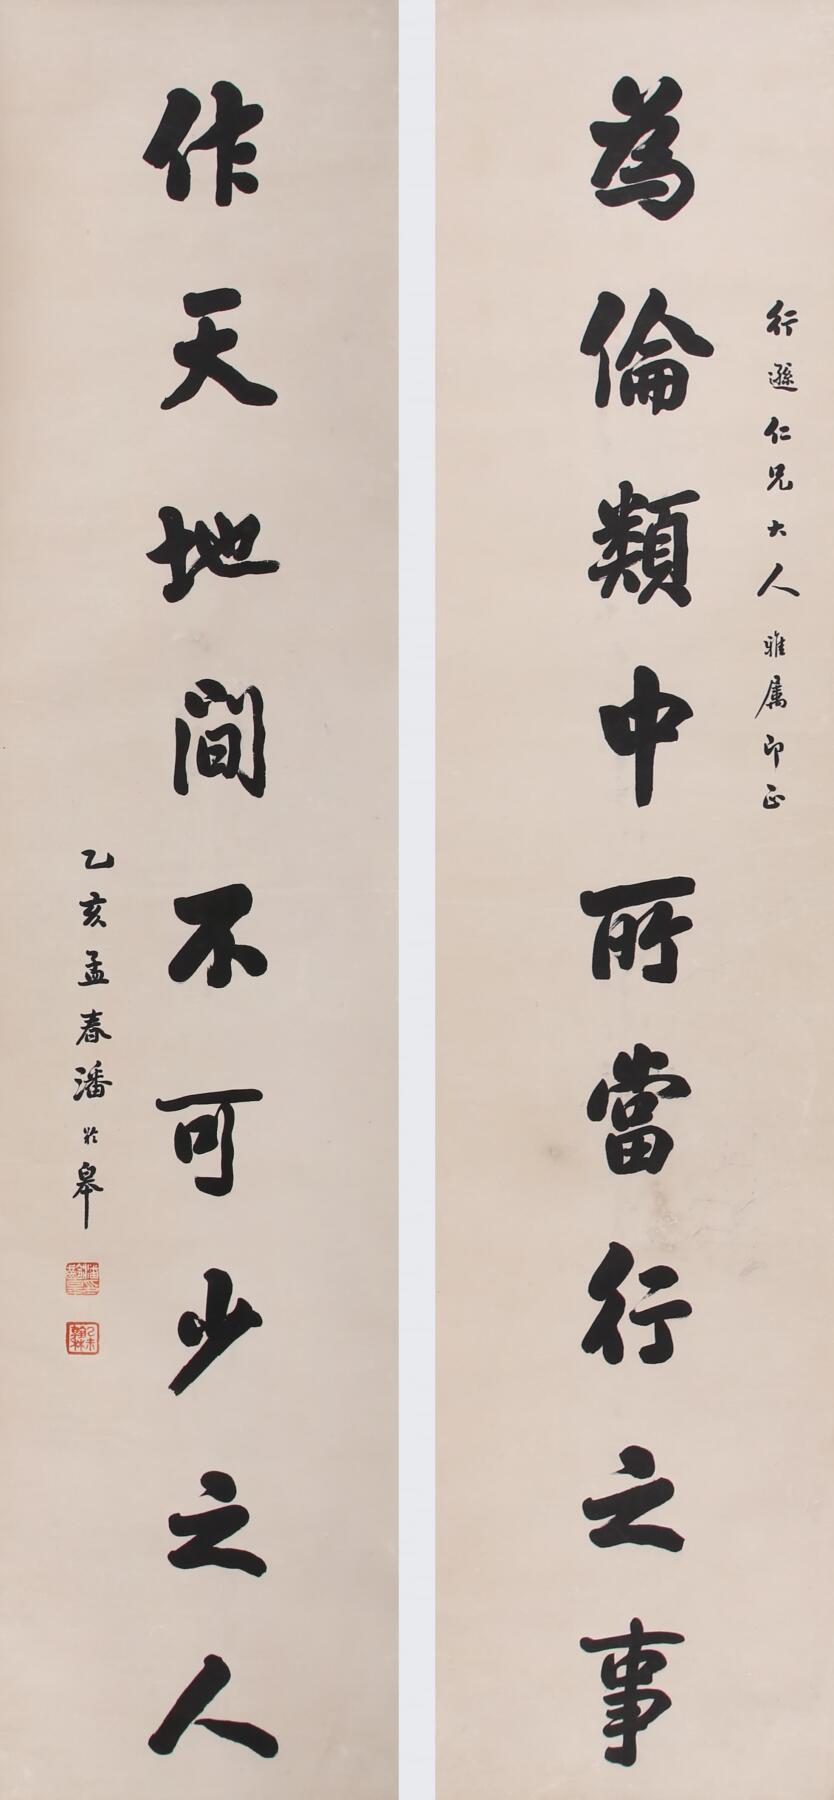 行遜仁兄大人雅属印正
為倫類中所當行之事
作天地間不可少之人
乙亥孟春潘於皋